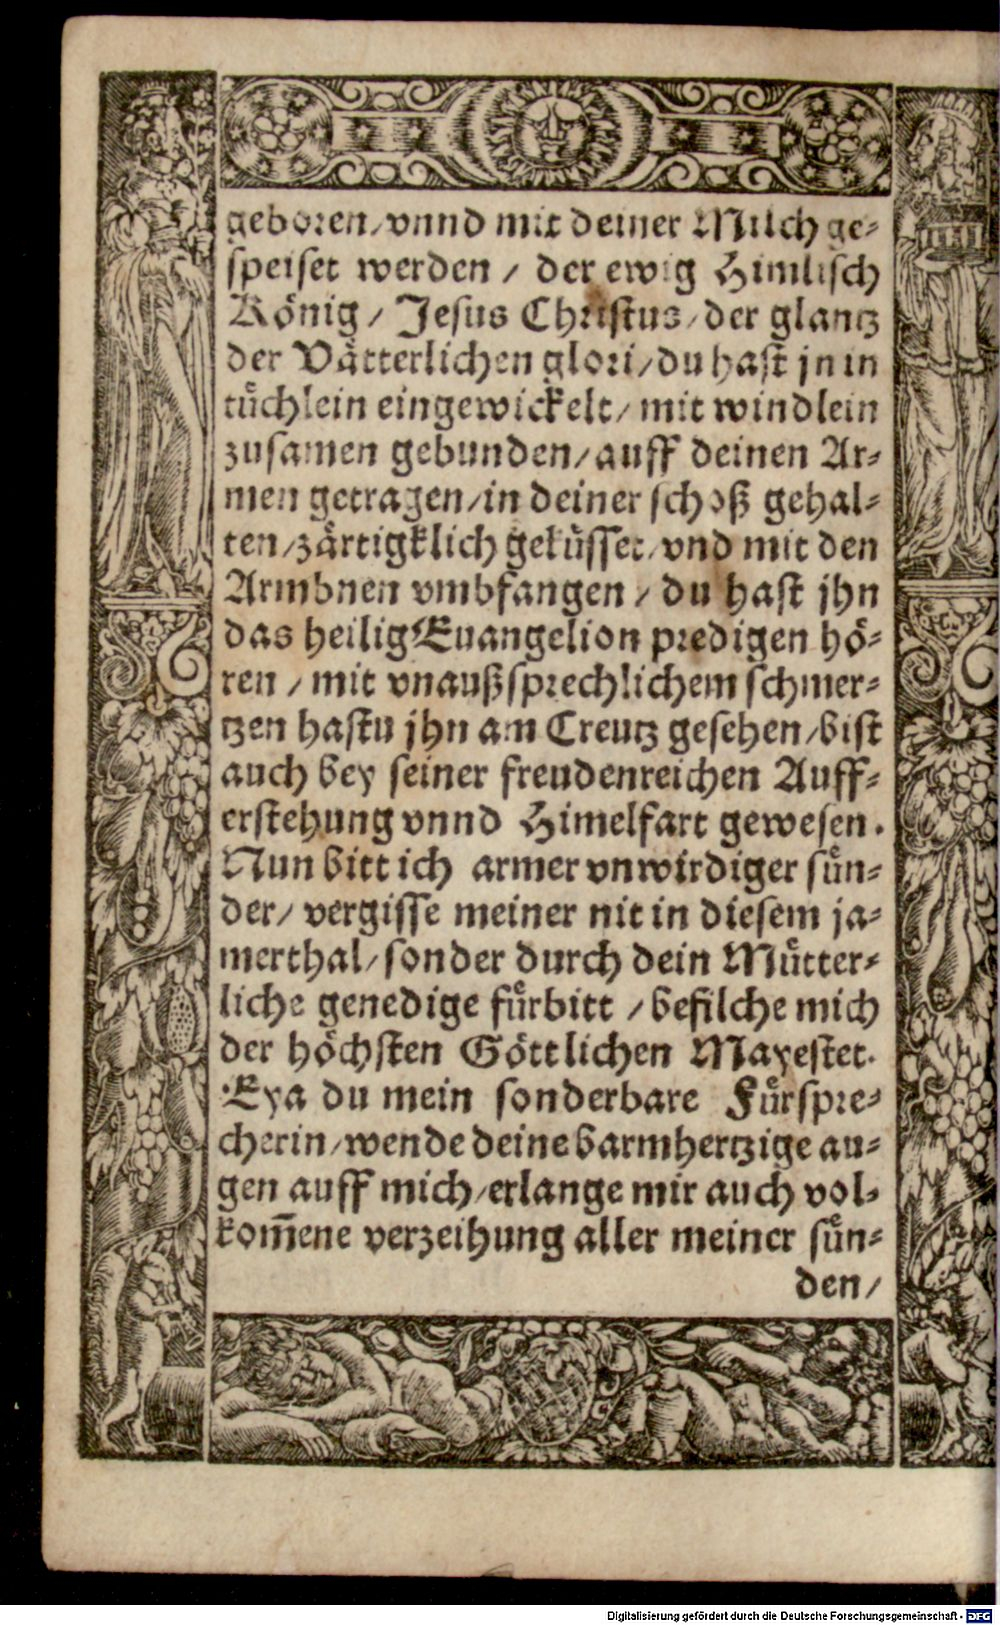 geboren/ vnnd mit deiner Milch ge⸗
speiset werden / der ewig Himlisch
König / Jesus Christus / der glantz
der Vätterlichen glori / du hast jn in
tüchlein eingewickelt / mit windlein
zusamen gebunden / auff deinen Ar⸗
men getragen / in deiner schoß gehal⸗
ten / zärtigklich geküsset / vnd mit den
Armbnen vmbfangen / du hast jhn
das heilig Euangelion predigen hö⸗
ren / mit vnaußsprechlichem schmer⸗
tzen hastu jhn am Creutz gesehen / bist
auch bey seiner freudenreichen Auff⸗
erstehung vnnd Himelfart gewesen.
Nun bitt ich armer vnwirdiger sün⸗
der / vergisse meiner nit in diesem ja⸗
merthal / sonder durch dein Mütter⸗
liche genedige fürbitt / befilche mich
der höchsten Göttlichen Mayestet.
Eya du mein sonderbare Fürspre⸗
cherin / wende deine barmhertzige au⸗
gen auff mich / erlange mir auch vol⸗
kom̄ene verzeihung aller meiner sün⸗
den /
Digitalisierung gefördert durch die Deutsche Forschungsgemeinschaft - DFG